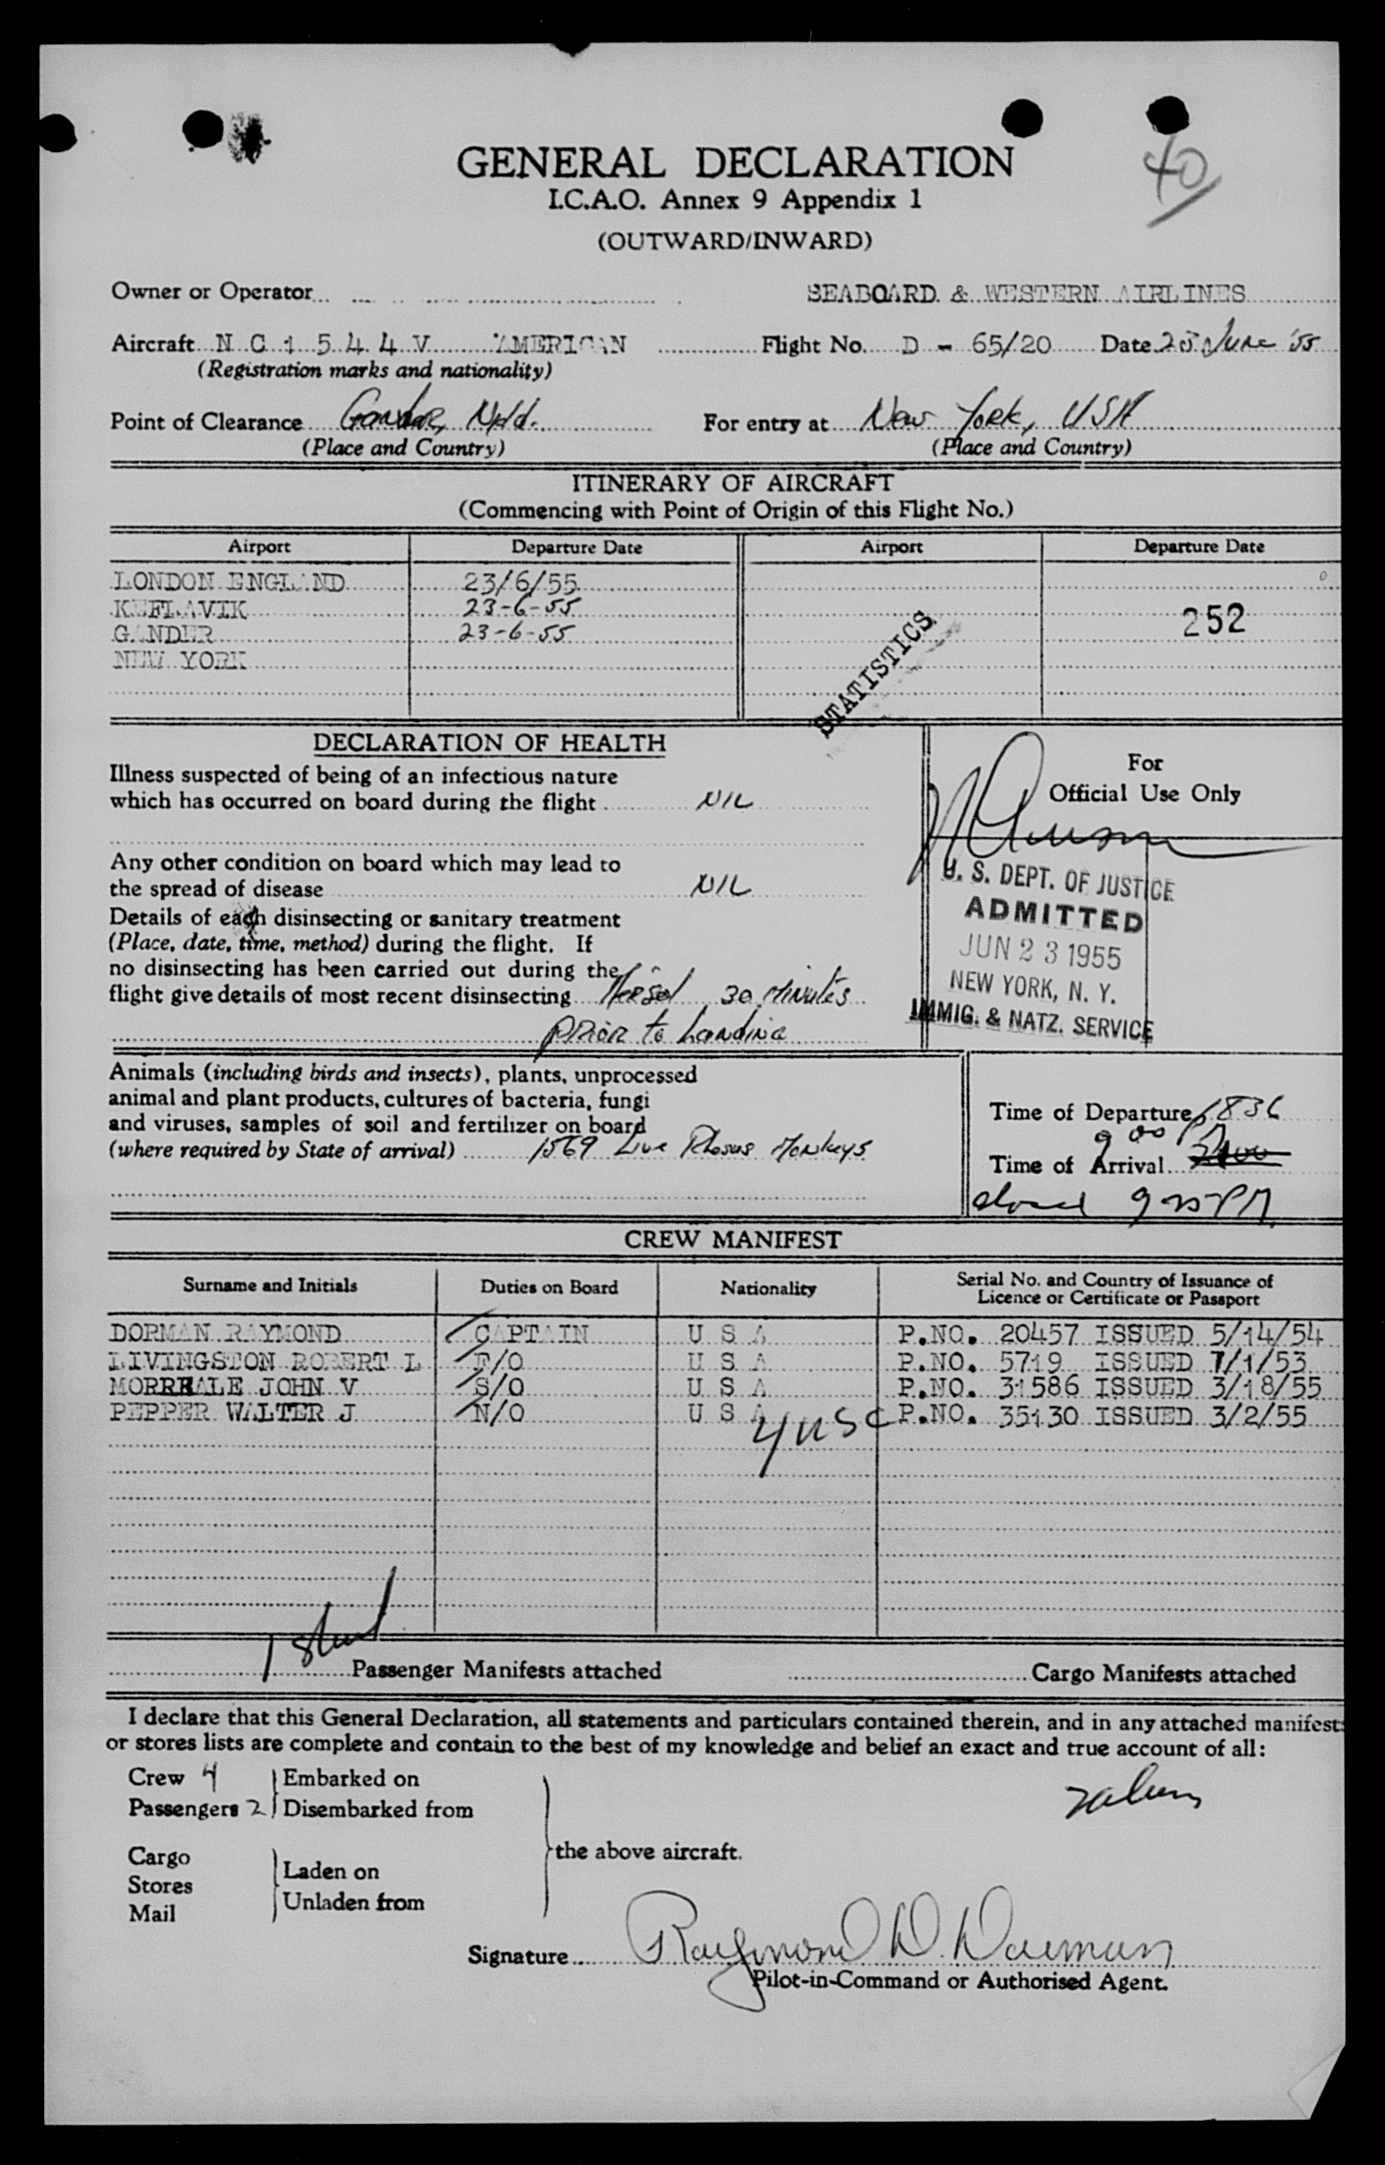 40
GENERAL DECLARATION
I.C.A.O. Annex 9 Appendix 1
(OUTWARD/INWARD)
Owner or Operator SEABOARD & WESTERN AIRLINES
Aircraft N C 1 5 4 4 V AMERICAN Flight No. D - 65/20 Date 23 June '55
(Registration marks and nationality)
Point of Clearance Gander, Nfld. For entry at New York, USA
(Place and Country) (Place and Country)
ITINERARY OF AIRCRAFT
(Commencing with Point of Origin of this Flight No.)
Airport Departure Date Airport Departure Date
LONDON ENGLAND 23/6/55
KEFLAVIK 23-6-55 252
GANDER 23-6-55
NEW YORK
STATISTICS
DECLARATION OF HEALTH
For
Official Use Only
Illness suspected of being of an infectious nature
which has occurred on board during the flight NIL
Any other condition on board which may lead to
the spread of disease NIL
Details of each disinsecting or sanitary treatment
(Place, date, time, method) during the flight. If
no disinsecting has been carried out during the
flight give details of most recent disinsecting Aersol 30 minutes
prior to Landing
U. S. DEPT. OF JUSTICE
ADMITTED
JUN 23 1955
NEW YORK, N. Y.
IMMIG. & NATZ. SERVICE
Animals (including birds and insects), plants, unprocessed
animal and plant products, cultures of bacteria, fungi
and viruses, samples of soil and fertilizer on board
(where required by State of arrival) 1569 Live Rhesus Monkeys
Time of Departure 1836
9 00 PM
Time of Arrival 2100
9 25 PM
CREW MANIFEST
Surname and Initials Duties on Board Nationality Serial No. and Country of Issuance of
Licence or Certificate or Passport
DORMAN RAYMOND CAPTAIN U S A P.NO. 20457 ISSUED 5/14/54
LIVINGSTON ROBERT L F/O U S A P.NO. 5719 ISSUED 7/1/53
MORREALE JOHN V S/O U S A P.NO. 31586 ISSUED 3/18/55
PEPPER WALTER J N/O U S A P.NO. 35130 ISSUED 3/2/55
4 USC
1
Passenger Manifests attached Cargo Manifests attached
I declare that this General Declaration, all statements and particulars contained therein, and in any attached manifests
or stores lists are complete and contain to the best of my knowledge and belief an exact and true account of all:
Crew 4 Embarked on
Passengers 2 Disembarked from
the above aircraft.
Cargo
Stores
Mail
Laden on
Unladen from
Signature Raymond W. Dorman
Pilot-in-Command or Authorised Agent.